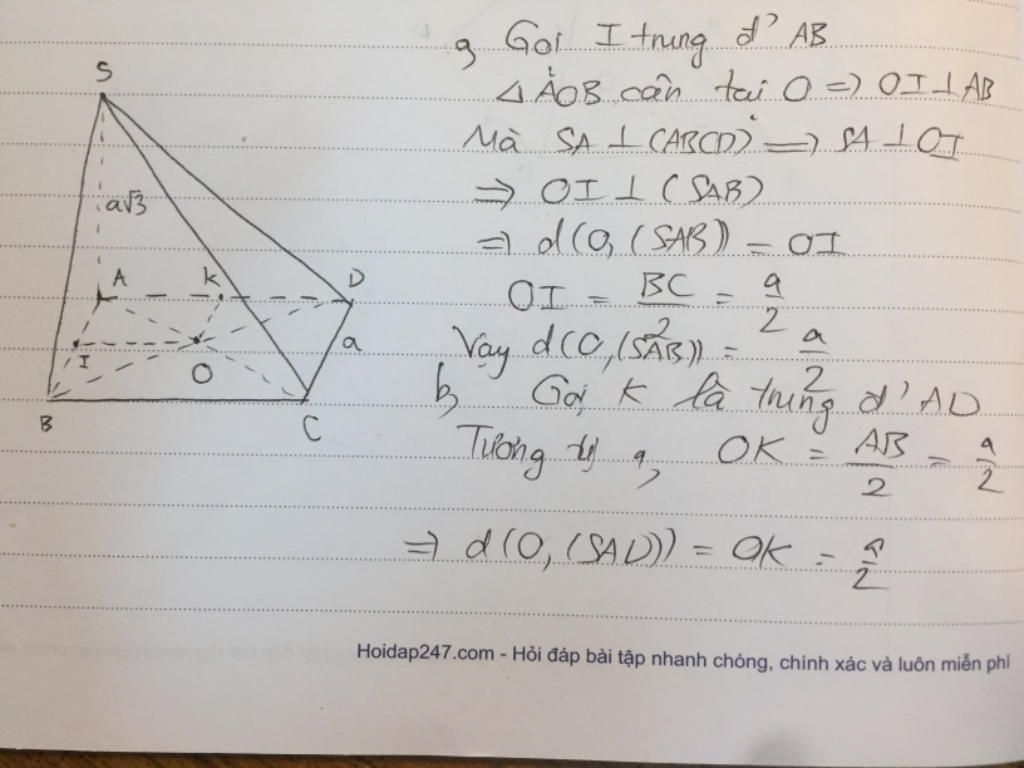 S
a√3
A
K
D
I
O
a
B
C
a, Gọi I trung đ' AB
△ AOB cân tại O => OI ⊥ AB
Mà SA ⊥ (ABCD) => SA ⊥ OI
=> OI ⊥ (SAB)
=> d(O, (SAB)) = OI
OI = BC/2 = a/2
Vậy d(O, (SAB)) = a/2
b, Gọi K là trung đ' AD
Tương tự a, OK = AB/2 = a/2
=> d(O, (SAD)) = OK = a/2
Hoidap247.com - Hỏi đáp bài tập nhanh chóng, chính xác và luôn miễn phí